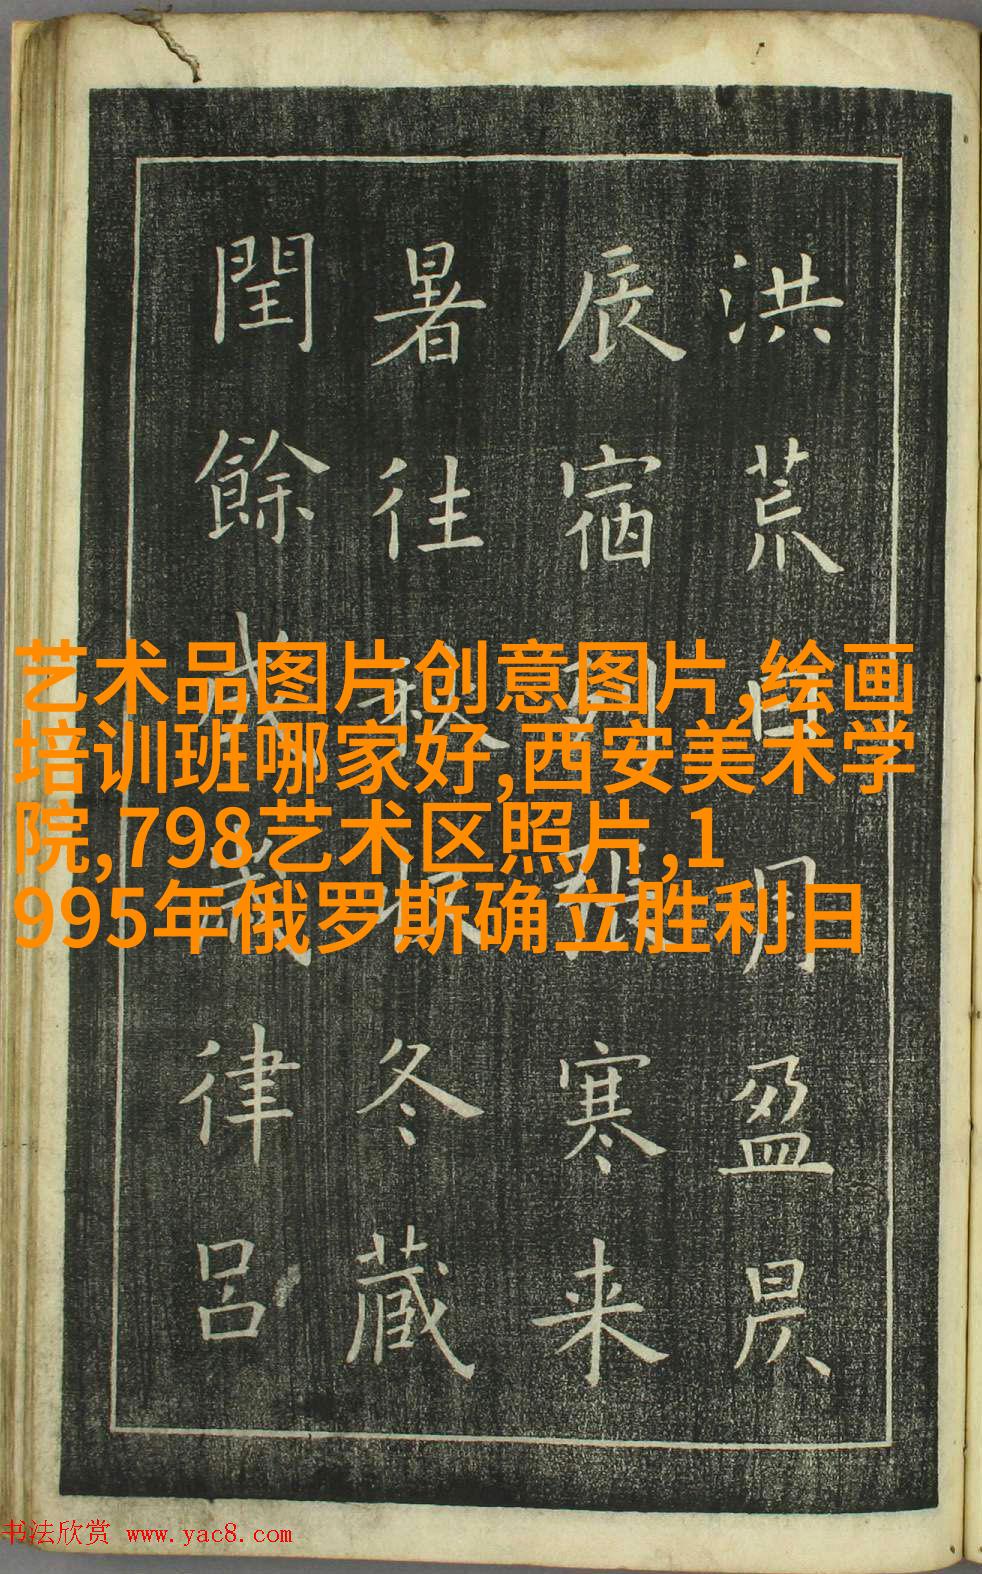 洪荒日月盈昃
辰宿列寒来
暑往秋冬藏
閏餘成律呂
艺术品图片创意图片,绘画
培训班哪家好,西安美术学
院,798艺术区照片,1
995年俄罗斯确立胜利日
书法欣赏 www.yac8.com